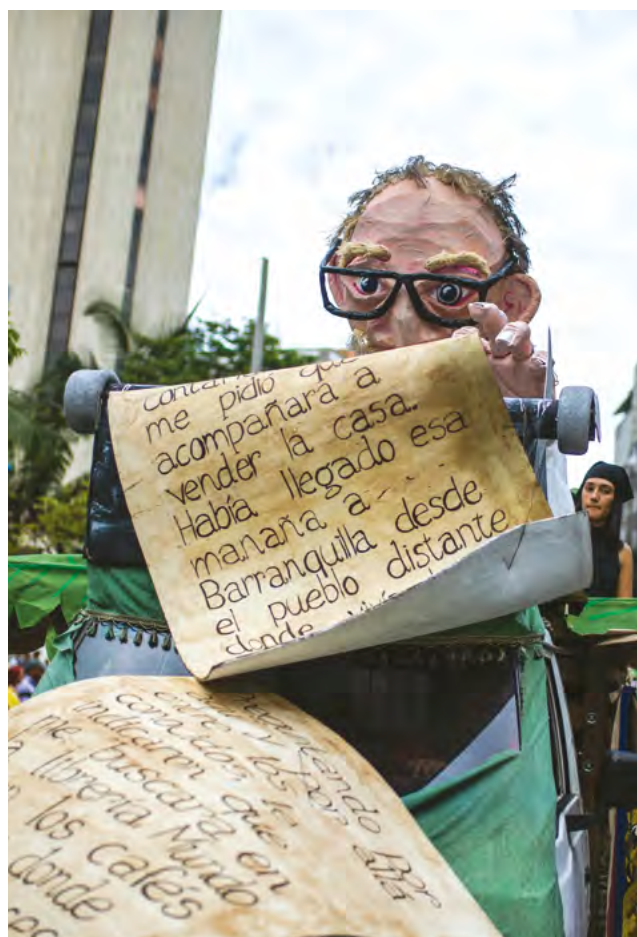 me pidió
acompañara a
vender la casa.
Había llegado esa
mañana a
Barranquilla desde
el pueblo distante
donde
por
por allá
le
indicaron que
me buscara en
librería Mundo
los cafés
donde